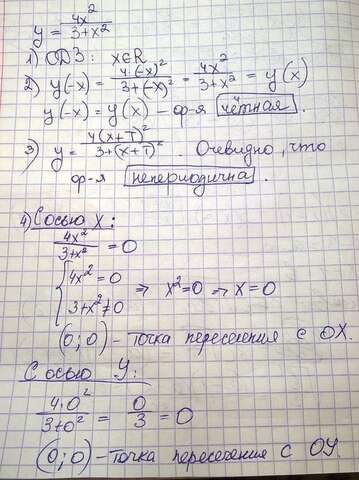 y = 4x²/3+x²
1) ОДЗ: x∈R
2) y(-x) = 4·(-x)²/3+(-x)² = 4x²/3+x² = y(x)
y(-x) = y(x) – ф-я чётная.
3) y = 4(x+T)²/3+(x+T)². Очевидно, что
ф-я непериодична.
4) С осью X:
4x²/3+x² = 0
{ 4x² = 0
3+x² ≠ 0 ⇒ x² = 0 → x = 0
(0; 0) – точка пересечения с OX.
С осью У:
4·0²/3+0² = 0/3 = 0
(0; 0) – точка пересечения с OУ.